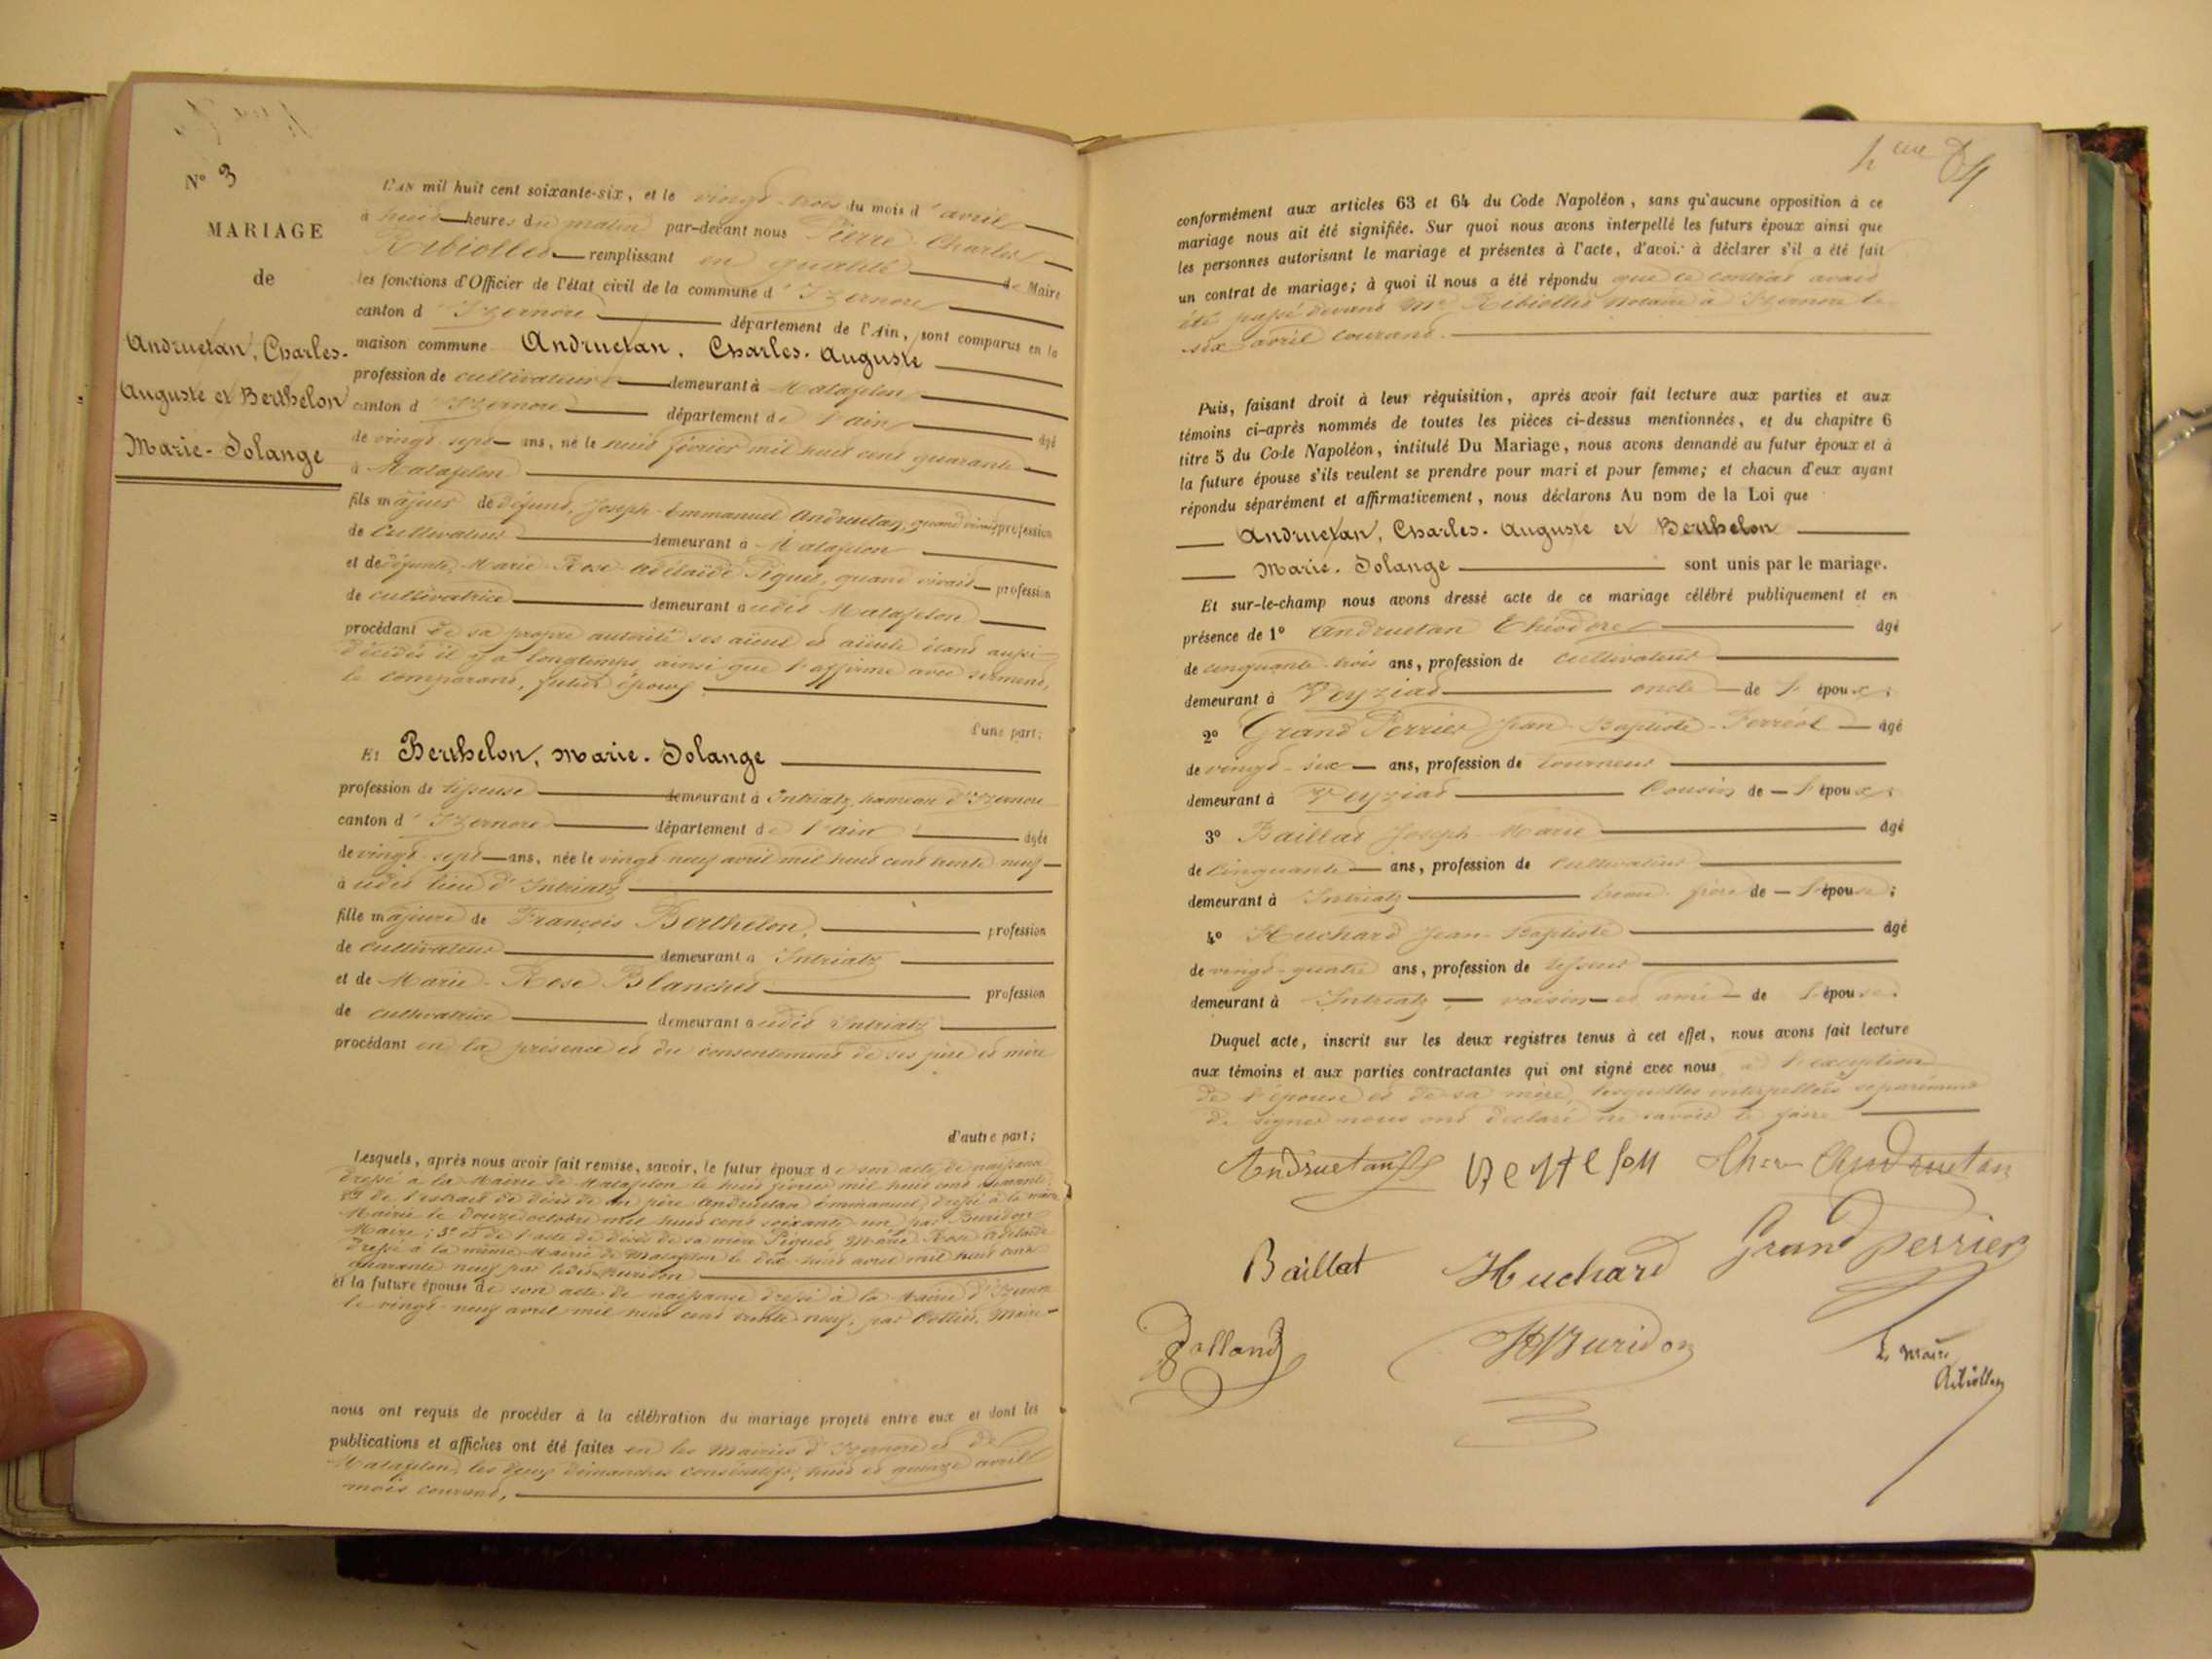 N° 3
MARIAGE
de
Andruetan, Charles-
Auguste et Berthelon
Marie-Solange
L'AN mil huit cent soixante-six, et le vingt-trois du mois d'avril
à huit heures du matin par-devant nous Pierre Charles
Ribiollet remplissant en qualité de Maire
les fonctions d'Officier de l'état civil de la commune d'Izernore
canton d'Izernore département de l'Ain, sont comparus en la
maison commune Andruetan, Charles-Auguste
profession de cultivateur demeurant à Matafelon
canton d'Izernore département de l'ain âgé
de vingt sept ans, né le huit février mil huit cent quarante
à Matafelon
fils majeur de défunt, Joseph-Emmanuel Andruetan, quand vivait profession
de Cultivateur demeurant à Matafelon
et de défunte, Marie-Rose-Adélaïde Piquet, quand vivait profession
de cultivatrice demeurant audit Matafelon
procédant de sa propre autorité ses aïeul et aïeule étant aussi
décédés il y a longtemps, ainsi que l'affirme avec serment,
le comparant, futur époux
d'une part;
Et Berthelon, Marie-Solange
profession de demeurant à Intriatz, hameau d'Izernore
canton d'Izernore département de l'ain âgée
de vingt-sept ans, née le vingt neuf avril mil huit cent trente neuf
à udit lieu d'Intriatz
fille majeure de François Berthelon, profession
de cultivateur demeurant à Intriatz
et de Marie-Rose Blanchet profession
de cultivatrice demeurant audit Intriatz
procédant en la présence et du consentement de ses père et mère
d'autre part;
Lesquels, après nous avoir fait remise, savoir, le futur époux de son acte de naissance
dressé à la Mairie de Matafelon le huit février mil huit cent quarante;
2° de l'extrait de décès de son père Andruetan Emmanuel, dressé à la même
Mairie le douze octobre mil huit cent soixante un par Buridon
Maire; 3° et de l'acte de décès de sa mère Piquet Marie Rose Adélaïde
dressé à la même Mairie de Matafelon le dix-huit avril mil huit cent
quarante neuf par ledit Buridon
et la future épouse de son acte de naissance dressé à la Mairie d'Izernore
le vingt-neuf avril mil huit cent trente neuf, par Maire
nous ont requis de procéder à la célébration du mariage projeté entre eux et dont les
publications et affiches ont été faites en les Mairies d'Izernore et de
Matafelon, les deux dimanches consécutifs, huit et quinze avril
mois courant,
conformément aux articles 63 et 64 du Code Napoléon, sans qu'aucune opposition à ce
mariage nous ait été signifiée. Sur quoi nous avons interpellé les futurs époux ainsi que
les personnes autorisant le mariage et présentes à l'acte, d'avoir à déclarer s'il a été fait
un contrat de mariage; à quoi il nous a été répondu que ce contrat avait
été passé devant Me Ribiollet notaire à Izernore le
six avril courant.
Puis, faisant droit à leur réquisition, après avoir fait lecture aux parties et aux
témoins ci-après nommés de toutes les pièces ci-dessus mentionnées, et du chapitre 6
titre 5 du Code Napoléon, intitulé Du Mariage, nous avons demandé au futur époux et à
la future épouse s'ils veulent se prendre pour mari et pour femme; et chacun d'eux ayant
répondu séparément et affirmativement, nous déclarons Au nom de la Loi que
Andruetan, Charles-Auguste et Berthelon
Marie-Solange sont unis par le mariage.
Et sur-le-champ nous avons dressé acte de ce mariage célébré publiquement et en
présence de 1° Andruetan Théodore âgé
de cinquante-trois ans, profession de cultivateur
demeurant à Veyziat oncle de l'époux;
2° Grand Perrier Jean-Baptiste-Ferréol âgé
de vingt-six ans, profession de tourneur
demeurant à Veyziat Cousin de l'époux;
3° Baillat Joseph-Marie âgé
de Cinquante ans, profession de Cultivateur
demeurant à Intriatz beau-frère de l'épouse;
4° Huchard Jean-Baptiste âgé
de vingt-quatre ans, profession de
demeurant à Intriatz voisin et ami de l'épouse.
Duquel acte, inscrit sur les deux registres tenus à cet effet, nous avons fait lecture
aux témoins et aux parties contractantes qui ont signé avec nous à l'exception
de l'épouse et de sa mère, lesquelles interpellées séparément
de signer nous ont déclaré ne savoir le faire
Andruetan Andruetan
Baillat Huchard Grand perrier
Buridon
Le Maire
Ribiollet